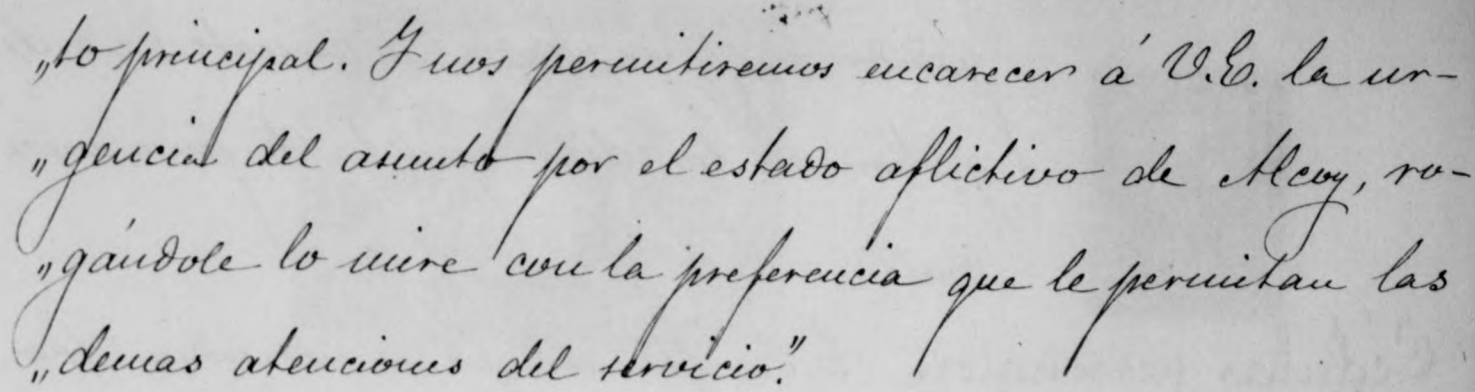 „to principal. Y nos permitiremos encarecer á V.E. la ur-
„gencia del asunto por el estado aflictivo de Alcoy, ro-
„gándole lo mire con la preferencia que le permitan las
„demas atenciones del servicio."